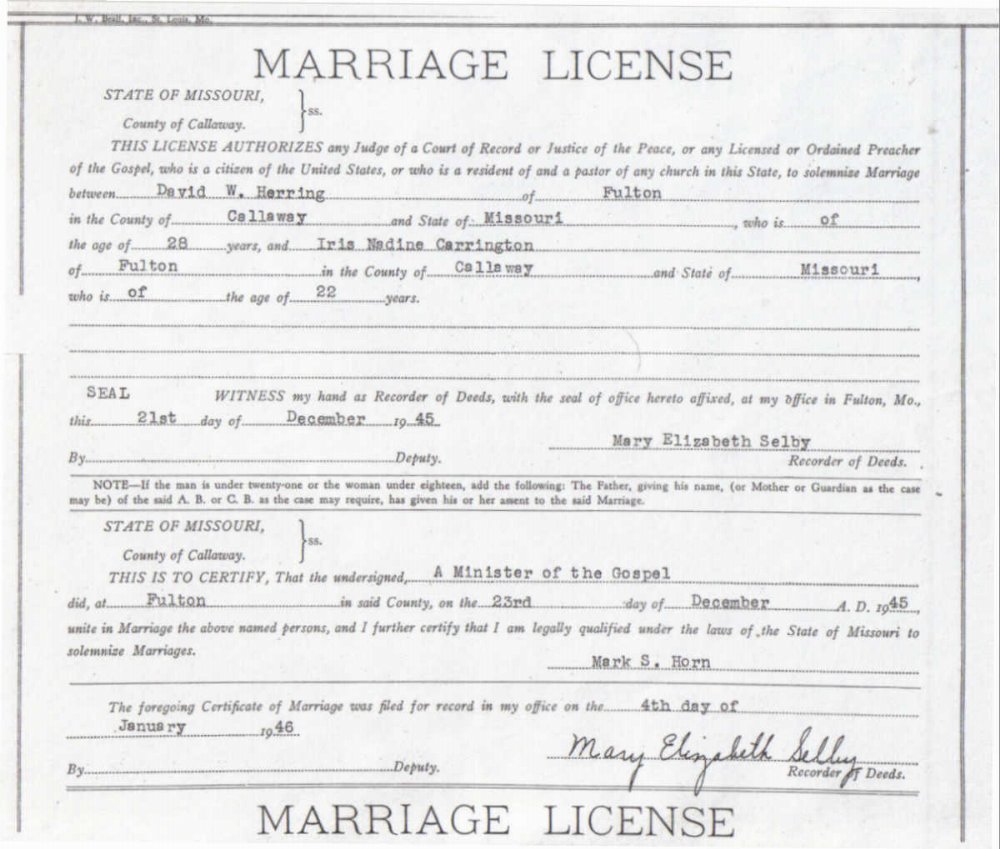 J. W. Beall, Inc., St. Louis, Mo.
MARRIAGE LICENSE
STATE OF MISSOURI,
County of Callaway. }ss.
THIS LICENSE AUTHORIZES any Judge of a Court of Record or Justice of the Peace, or any Licensed or Ordained Preacher
of the Gospel, who is a citizen of the United States, or who is a resident of and a pastor of any church in this State, to solemnize Marriage
between David W. Herring of Fulton
in the County of Callaway and State of Missouri, who is of
the age of 28 years, and Iris Nadine Carrington
of Fulton in the County of Callaway and State of Missouri,
who is of the age of 22 years.
SEAL WITNESS my hand as Recorder of Deeds, with the seal of office hereto affixed, at my office in Fulton, Mo.,
this 21st day of December 1945
Mary Elizabeth Selby
By Deputy. Recorder of Deeds.
NOTE—If the man is under twenty-one or the woman under eighteen, add the following: The Father, giving his name, (or Mother or Guardian as the case
may be) of the said A. B. or C. B. as the case may require, has given his or her assent to the said Marriage.
STATE OF MISSOURI,
County of Callaway. }ss.
THIS IS TO CERTIFY, That the undersigned, A Minister of the Gospel
did, at Fulton in said County, on the 23rd day of December A. D. 1945
unite in Marriage the above named persons, and I further certify that I am legally qualified under the laws of the State of Missouri to
solemnize Marriages.
Mark S. Horn
The foregoing Certificate of Marriage was filed for record in my office on the 4th day of
January 1946
Mary Elizabeth Selby
By Deputy. Recorder of Deeds.
MARRIAGE LICENSE